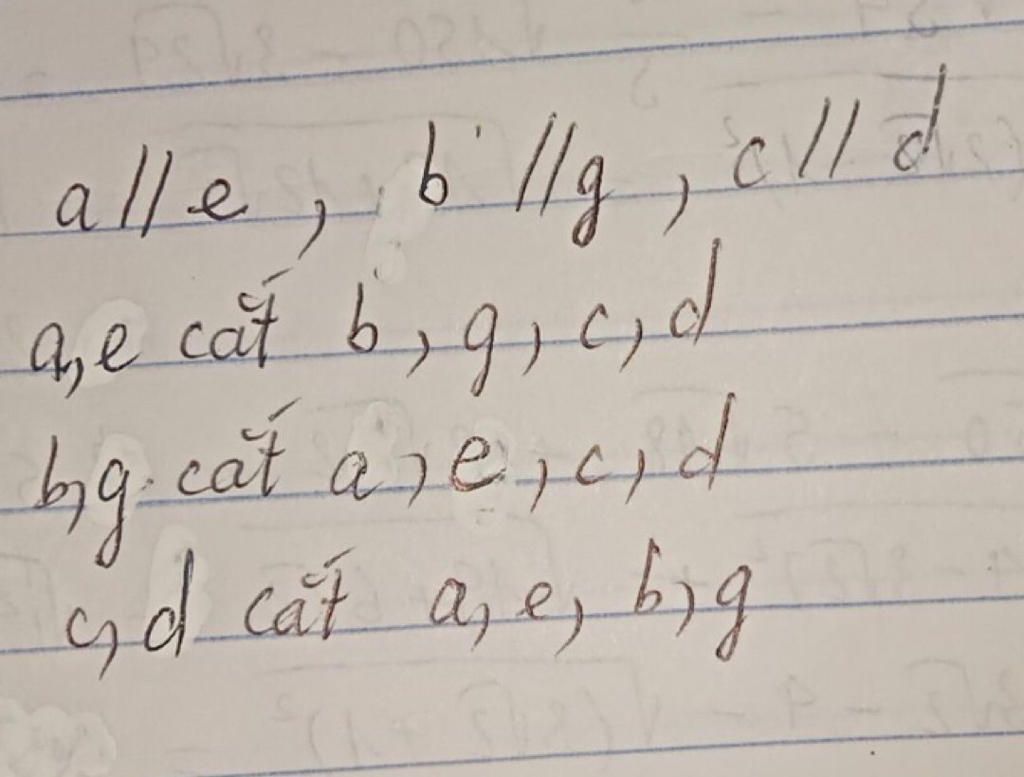 a//e, b//g, c//d
a,e cắt b, g, c, d
b,g cắt a, e, c, d
c,d cắt a, e, b, g